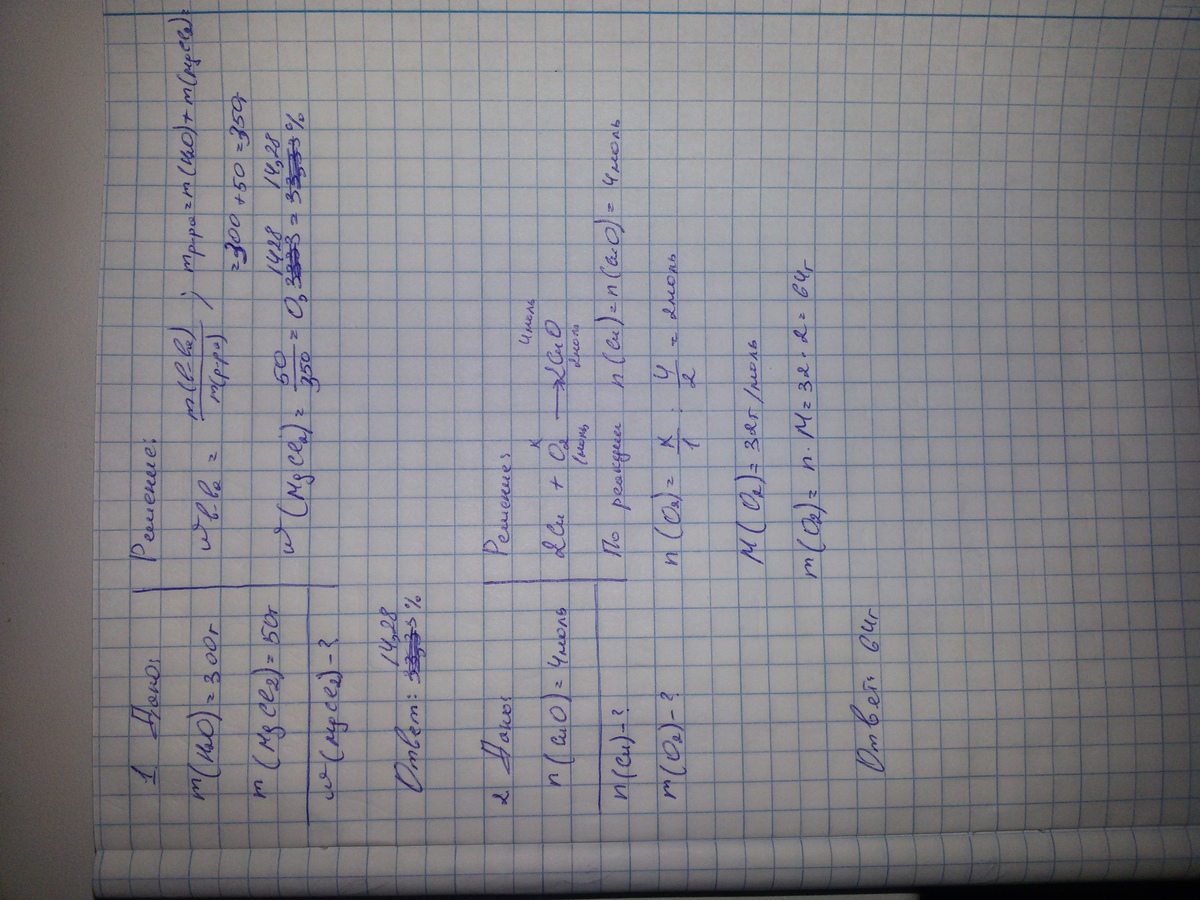 1 Дано:
m(H₂O) = 300г
m(MgCl₂) = 50г
w(MgCl₂) - ?
Решение:
w в-ва = m(в-ва) / m(р-ра) ; m р-ра = m(H₂O) + m(MgCl₂) =
= 300 + 50 = 350г
w(MgCl₂) = 50 / 350 = 0,1428 = 14,28 %
Ответ: 14,28 %
2 Дано:
n(CuO) = 4моль
n(Cu) - ?
m(O₂) - ?
Решение:
x 4моль
2Cu + O₂ → 2CuO
1моль 2моль
По реакции n(Cu) = n(CuO) = 4моль
n(O₂) = x / 1 : 4 / 2 = 2моль
M(O₂) = 32г/моль
m(O₂) = n · M = 32 · 2 = 64г
Ответ: 64г